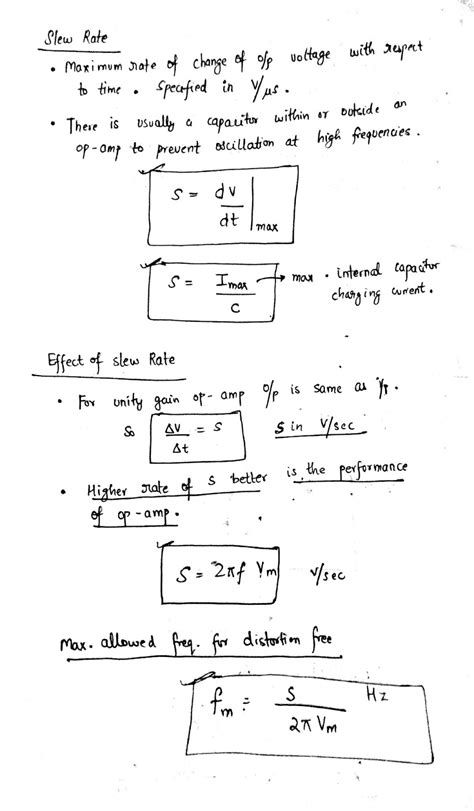 Slew Rate
• Maximum rate of change of o/p voltage with respect
to time. Specified in V/μs.
• There is usually a capacitor within or outside an
op-amp to prevent oscillation at high frequencies.
S = dv/dt |max
S = Imax/C → max. internal capacitor
charging current.
Effect of slew Rate
• For unity gain op-amp o/p is same as i/p.
So ΔV/Δt = S S in V/sec
• Higher rate of S better is the performance
of op-amp.
S = 2πf Vm V/sec
Max. allowed freq. for distortion free
fm = S/2π Vm Hz